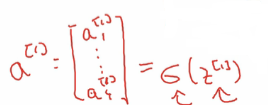 a^[1] = [a_1^[1] ⋮ a_4^[1]] = σ(z^[1])